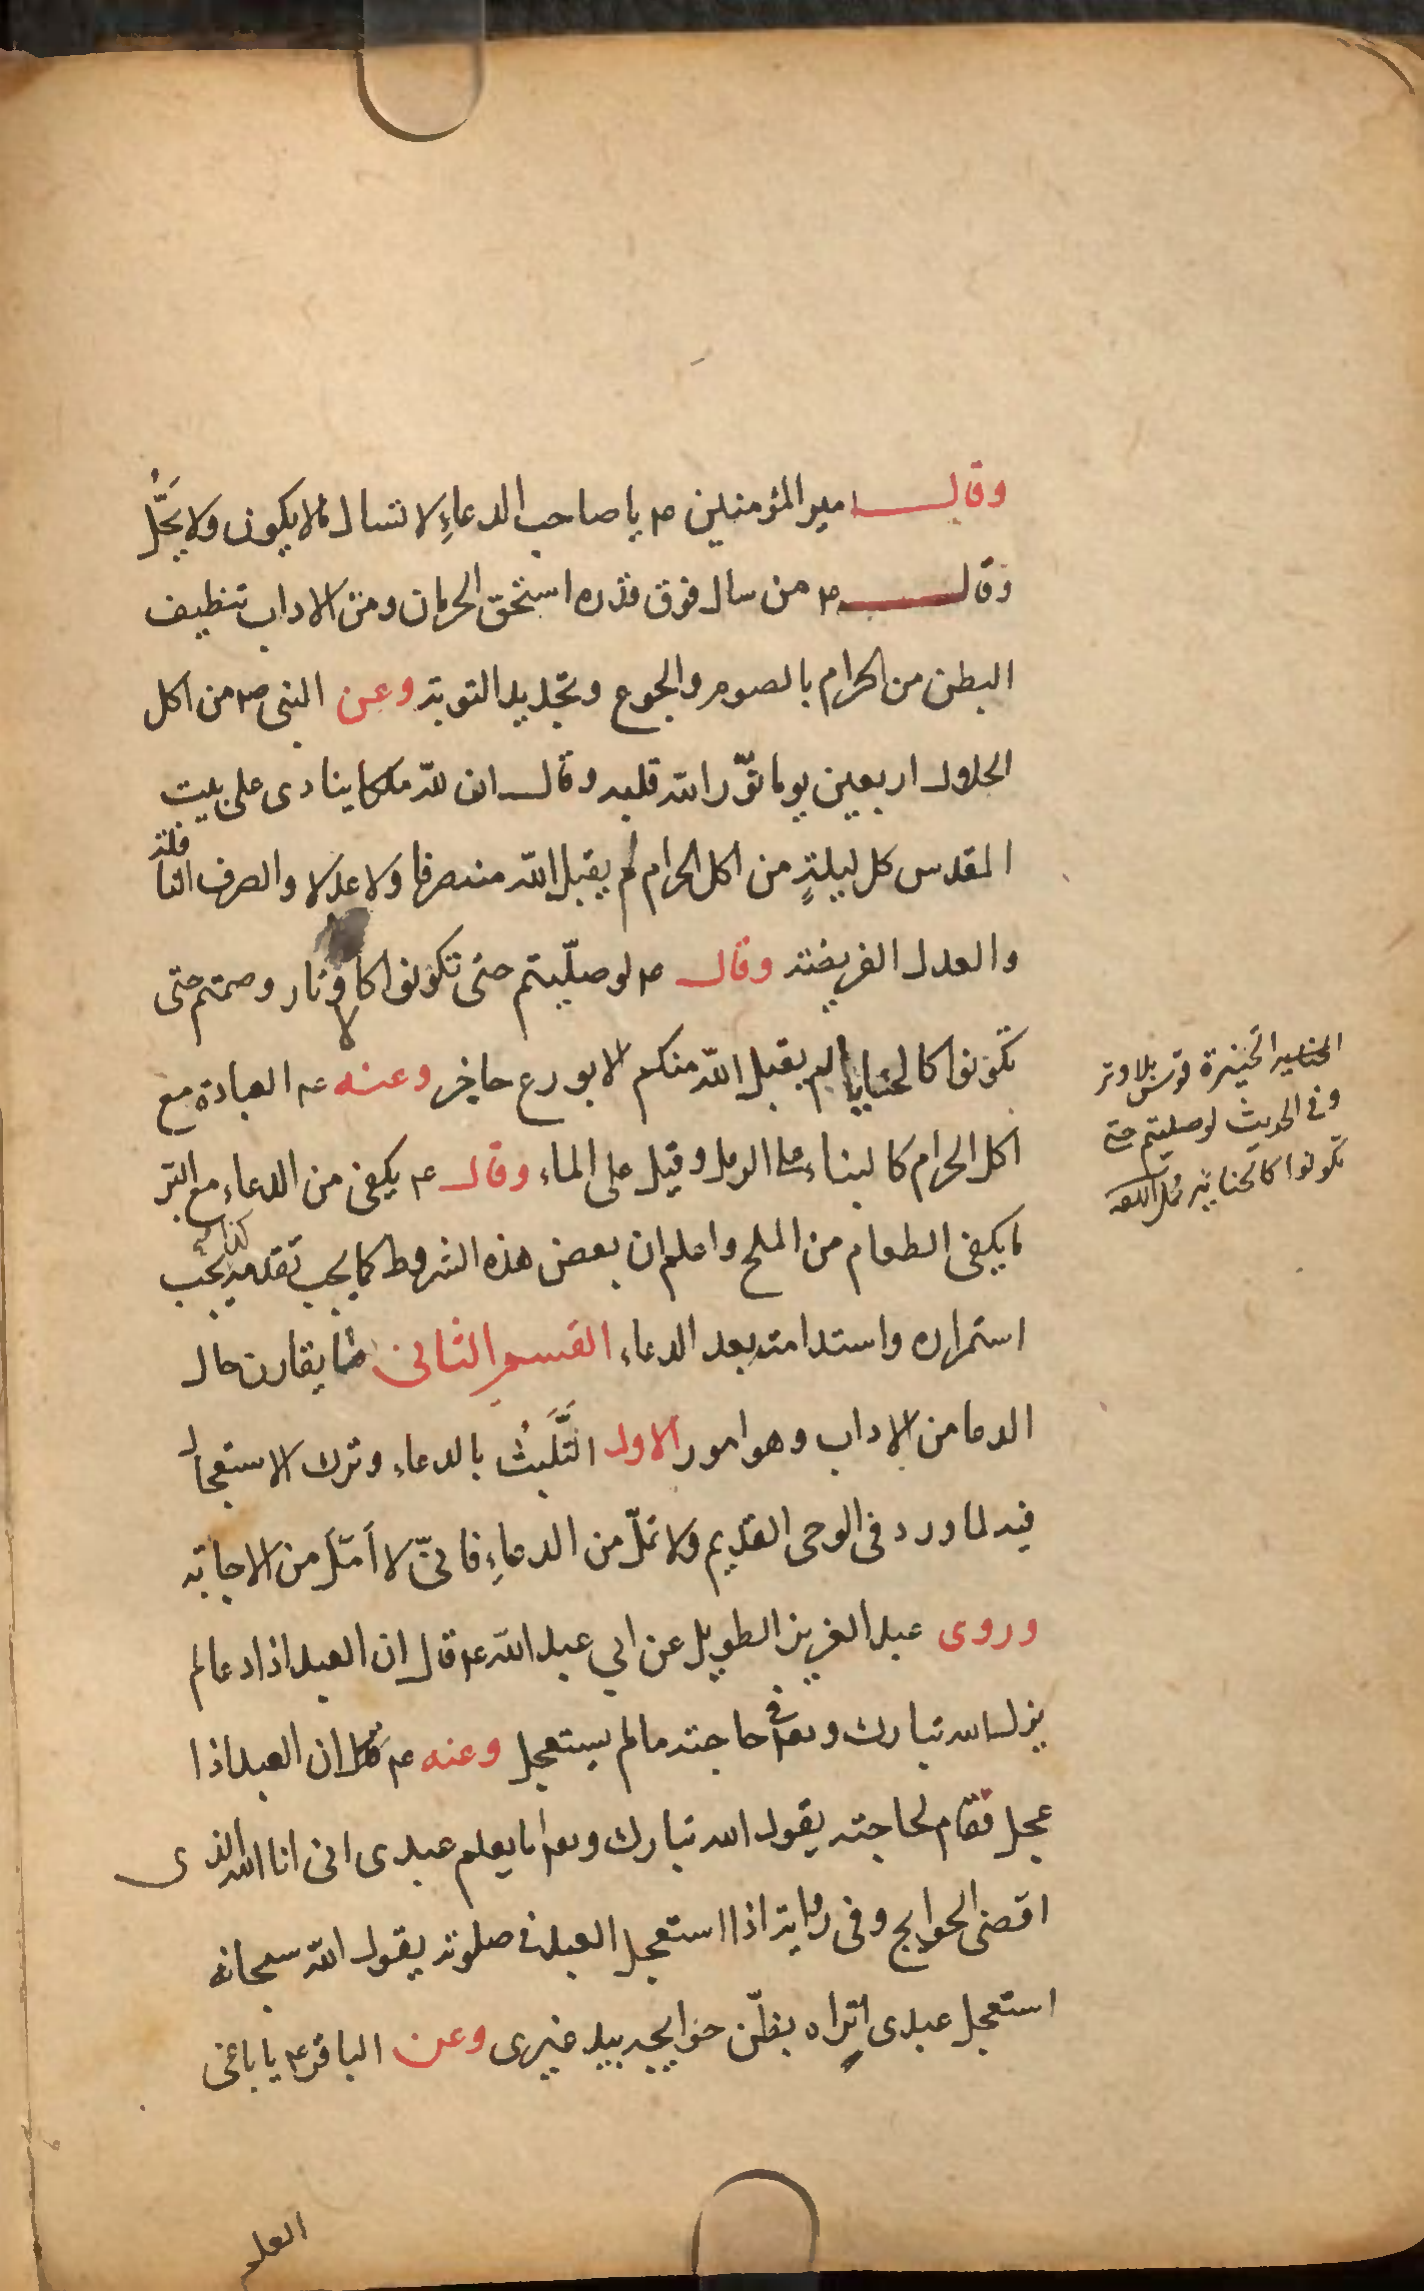 وقال امير المؤمنين ع يا صاحب الدعاءِ لا تسال ما لا يكون ولا يَحِّلُ
وقال ع من سال فوق قدره استحق الحرمان ومن الاداب تنظيف
البطن من الحرام بالصوم والجوع وتجديد التوبة وعن النبى ص من اكل
الحلال اربعين يوما نوّر الله قلبه وقال ان للّه ملكا ينادى على بيت
المقدس كل ليلةٍ من اكل الحرام لم يقبل اللّه منه صرفا ولا عدلا والصرف النافلة
والعدل الفريضة وقال ع لو صلّيتم حتى تكونوا كالاوتار وصمتم حتى
تكونوا كالحنايا لم يقبل اللّه منكم الا بورع حاجز وعنه ع العبادة مع
اكل الحرام كالبناء على الرمل وقيل على الماء وقال ع يكفى من الدعاء مع البر
ما يكفى الطعام من الملح واعلم ان بعض هذه الشروط كما يجب تقدمه كذلك يجب
استمراره واستدامته بعد الدعاء القسم الثانى ما يقارن حال
الدعا من الاداب وهو امور الاول التَّلَبثُ بالدعاء وترك الاستعجال
فيه لما ورد فى الوحى القديم ولا تملّ من الدعاءِ فانىّ لا اَمَلّ من الاجابة
وروى عبد العزيز الطويل عن ابي عبد اللّه ع قال ان العبد اذا دعا لم
يزل الله تبارك وتعالى فى حاجته ما لم يستعجل وعنه ع قال ان العبد اذا
عجل فقام لحاجته يقول الله تبارك وتعالى اما يعلم عبدى انى انا الله الذى
اقضى الحوايج وفى رواية اذا استعجل العبد فى صلوته يقول اللّه سبحانه
استعجل عبدى اتراه يظنّ حوايجه بيد غيرى وعن الباقر ع يا باغى
العلم
الحنيرة قوس بلا وتر
وفى الحديث لو صليتم حتى
تكونوا كالحناير